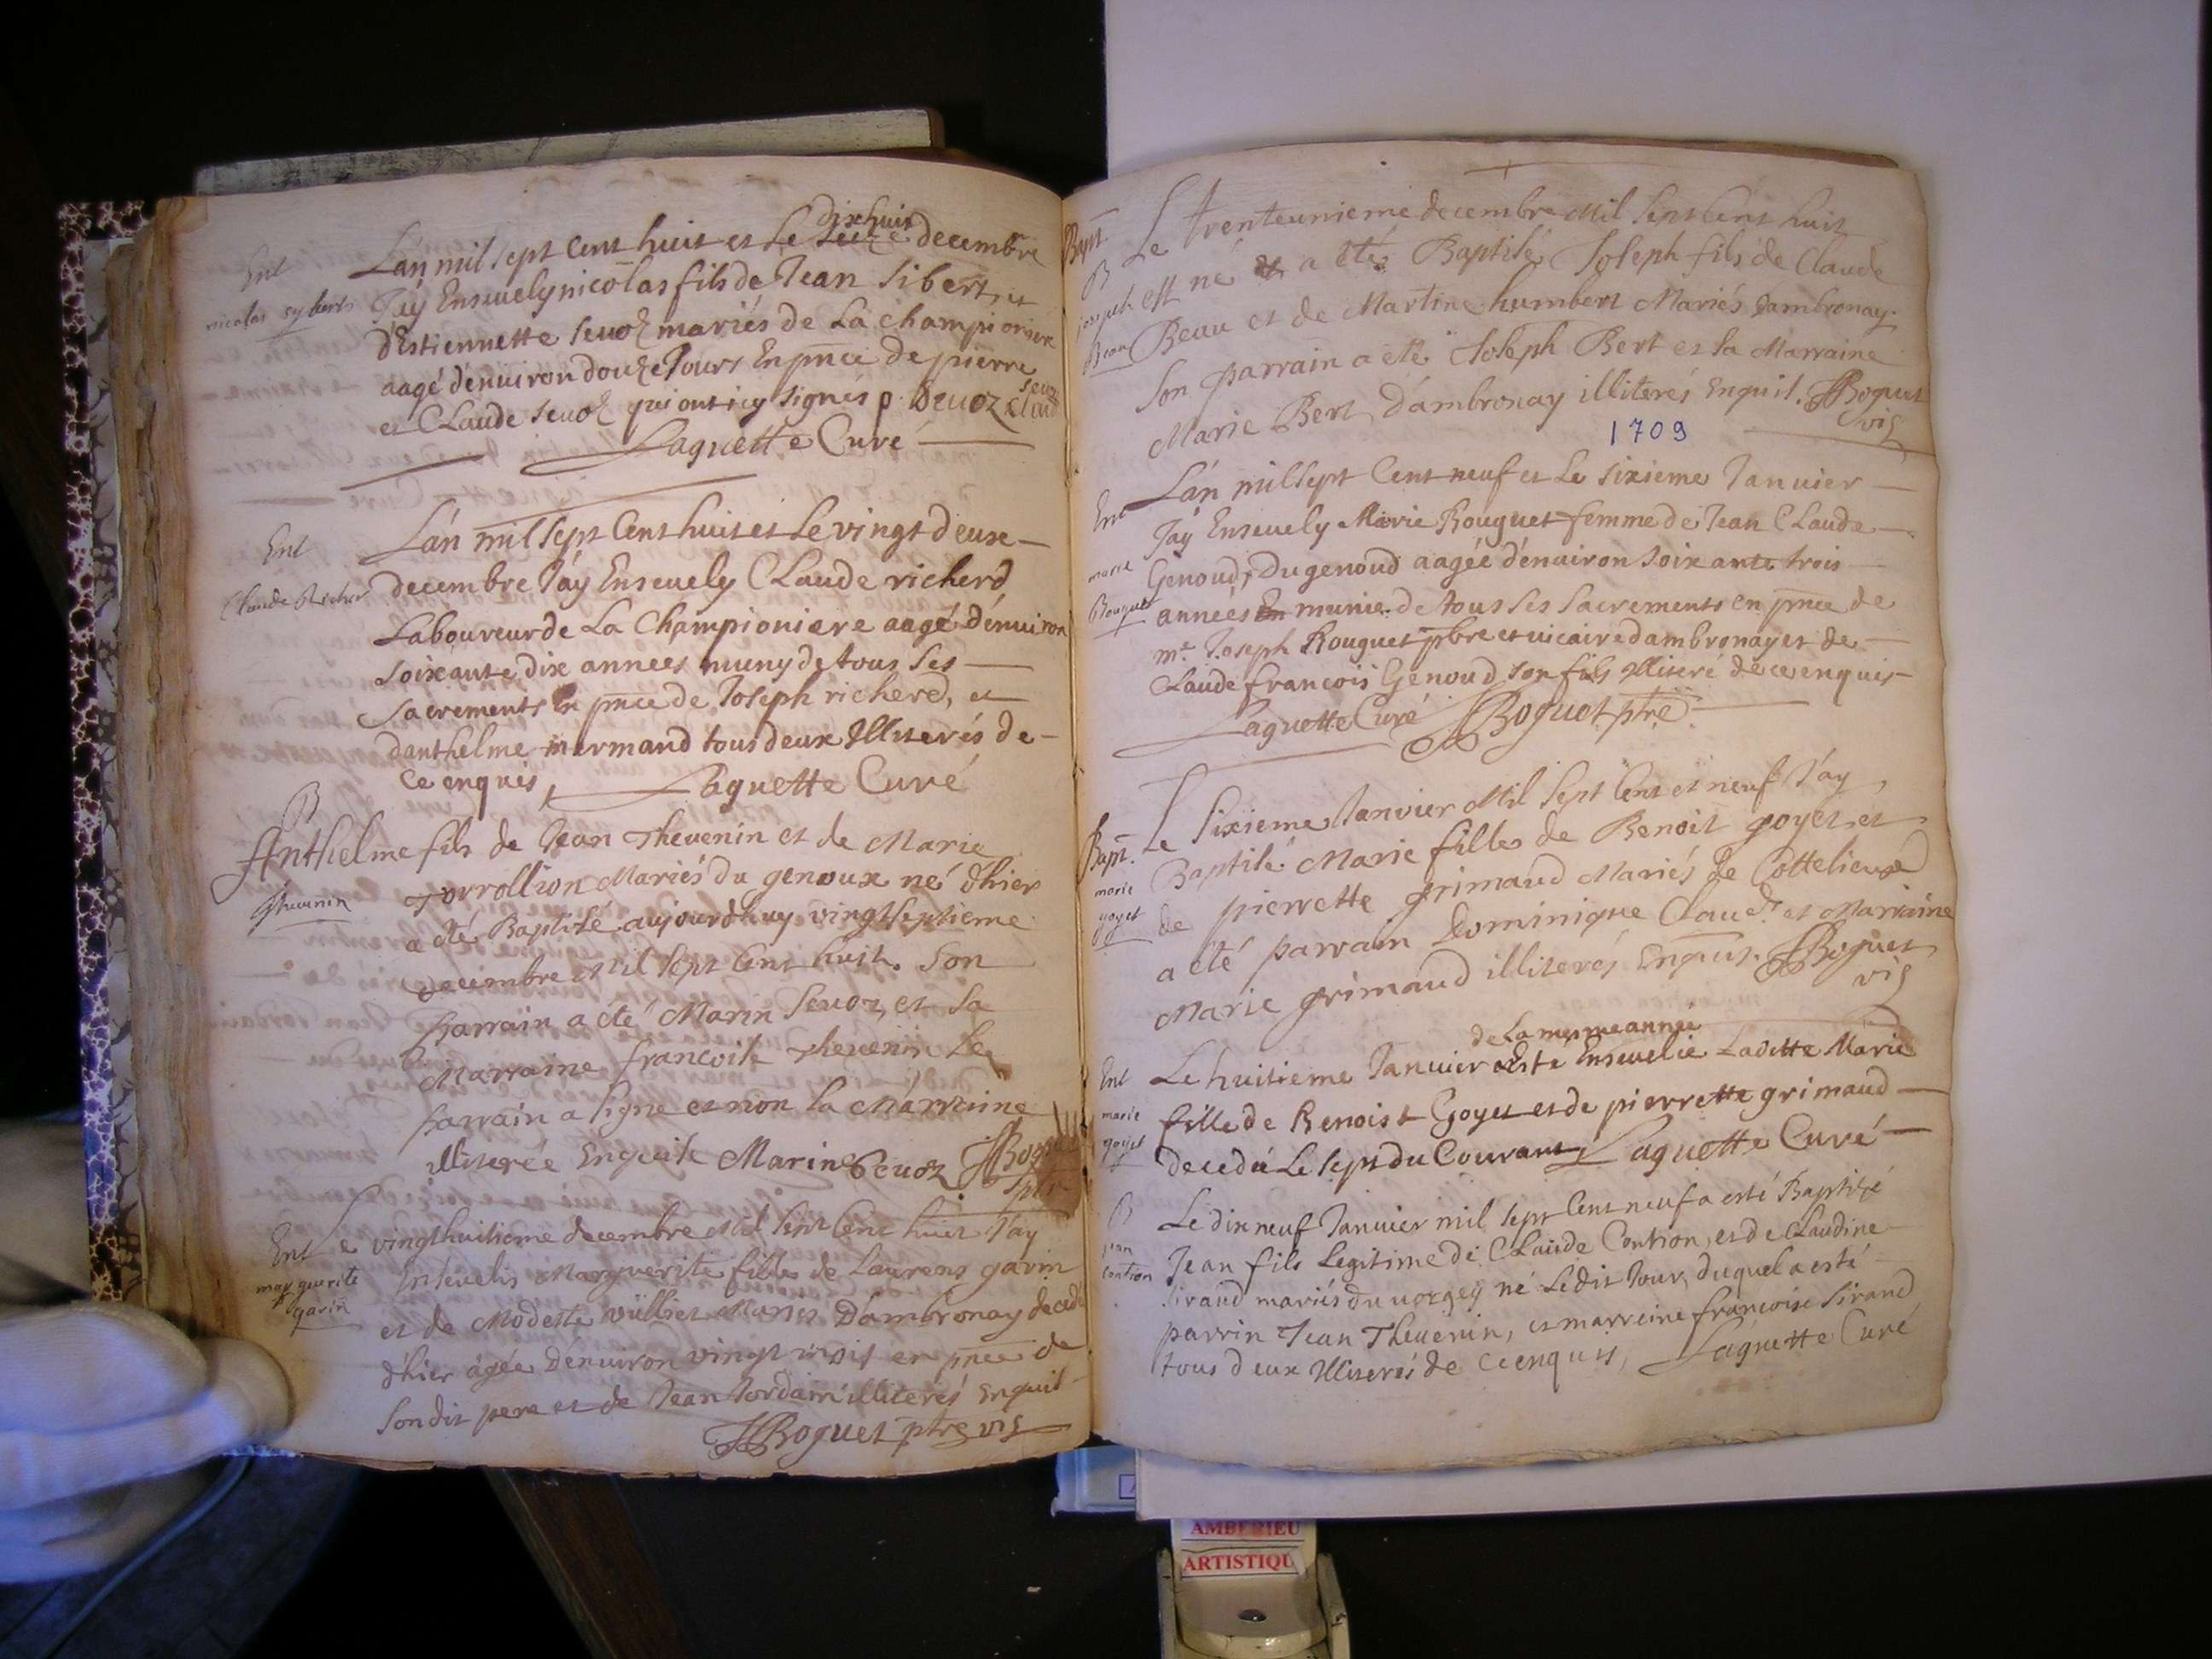 Ent
nicolas syberts
L'an mil sept Cent huit et Le dixhuit decembre
J'ay Enseuely nicolas fils de Jean Sibert, et
d'Estiennette Seuoz mariés de La Championiere
aagé d'enuiron douze Jours En pnce de pierre
et CLaude Seuoz qui ont icy signés p. Seuoz Claude Seuoz
Laguette Curé
Ent
Claude Richer
L'an mil sept Cent huit et Le vingt deuxe
decembre J'ay Enseuely CLaude richerd
Laboureur de La Championiere aagé d'enuiron
soixante dix annees muny de tous ses
sacrements En pnce de Joseph richerd, et
danthelme mermand tous deux Illiterés de
ce enquis, Laguette Curé
B
Anthelme fils de Jean Thevenin et de Marie
Theuenin
Torrollion Mariés du genoux né d'hier
a été Baptisé aujourdhuy vingtseptieme
decembre Mil sept Cent huit. Son
parrain a été Marin Seuoz, et sa
Marraine francoise Thevenin Le
parrain a signe et non la Marraine
illiterée Enquise Marin Seuoz JBoguet ptre
Ent
marguerite garin
Le vingthuitieme decembre Mil sept Cent huit J'ay
Enseuelis Marguerite fille de Laurens garin
et de Modeste vülliet Mariés Dambronay decedé
d'hier agée D'enuiron vingt mois en pnce de
sondit pere et de Jean Jordain illiterés Enquis
JBoguet ptre vis
Bapt
B
joseph
Beau
Le trenteunieme decembre Mil sept Cent huit
est né et a été Baptisé Joseph fils de Claude
Beau et de Martine humbert Mariés Dambronay.
Son parrain a été Joseph Bert et sa Marraine
Marie Bert d'ambronay illiterés Enquis. JBoguet
vis
1709
Ent
marie
Bouguet
L'an mil sept Cent neuf et Le sixieme Januier
J'ay Enseuely Marie Rouguet femme de Jean CLaude
Genoud, Du genoud aagée d'enuiron soixante trois
années munie de tous ses sacrements en pnce de
me. Joseph Rouguet pbre et vicaire d'ambronay et de
Claude francois Genoud son fils Illiteré de ce enquis
Laguette Curé JBoguet ptre
Bapt.
marie
goyet
Le sixieme Janvier Mil sept Cent et neuf J'ay
Baptisé Marie fille de Benoit goyet et
de pierrette grimaud Mariés de Cottelieux
a été parrain Dominique Claud et Marraine
Marie grimaud illiterés Enquis. JBoguet
vis
Ent
marie
goyet
de La mesme année
Le huitieme Januier a esté Enseuelie Laditte Marie
fille de Benoist Goyet et de pierrette grimaud
decedée Le sept du Courant, Laguette Curé
B
jean
contion
Le dixneuf Januier mil sept Cent neuf a esté Baptisé
Jean fils Legitime de CLaude Contion, et de CLaudine
Sirand mariés du uorgey né Ledit Jour, duquel a esté
parrin Jean Theuenin, et marreine francoise Sirand
tous deux Illiterés de ce enquis, Laguette Curé
AMBERIEU
ARTISTIQU